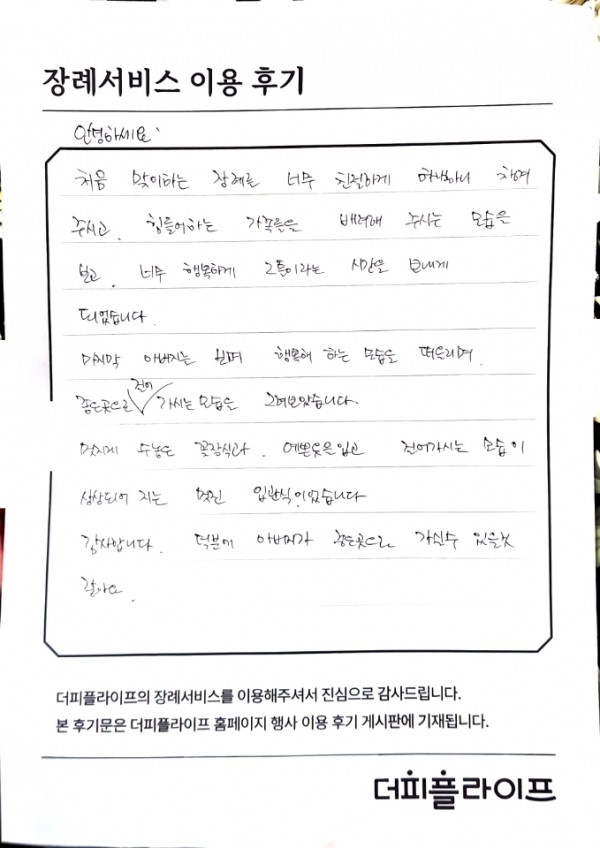 장례서비스 이용 후기
안녕하세요.
처음 맞이하는 장례를 너무 친절하게 하나하나 챙겨
주시고. 힘들어하는 가족들을 배려해 주시는 모습을
보고. 너무 행복하게 3일이라는 시간을 보내게
되었습니다.
마지막 아버지를 보며 행복해 하는 모습을 떠올리며.
좋은곳으로 걸어 가시는 모습을 그려보았습니다.
멋지게 수놓은 꽃장식과. 예쁜옷을입고 걸어가시는 모습이
상상되어 지는 멋진 입관식이었습니다
감사합니다. 덕분에 아버지가 좋은곳으로 가실수 있을것
같아요.
더피플라이프의 장례서비스를 이용해주셔서 진심으로 감사드립니다.
본 후기문은 더피플라이프 홈페이지 행사 이용 후기 게시판에 기재됩니다.
더피플라이프